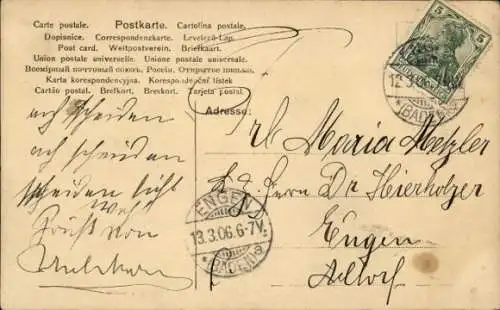 Carte postale. Postkarte. Cartolina postale.
Dopisnice. Correspondenzkarte. Levelező-Lap.
Post card. Weltpostverein. Briefkaart.
Union postale universelle. Unione postale universale.
Всемірный почтовый союзъ. Россія. Открытое письмо.
Karta korespondencyjna. Korespondenční lístek
Cartão postal. Brefkort. Brevkort. Tarjeta postal.
Adresse:
5 5
12.3
(BADEN)
Frl Maria Metzler
Herrn Dr Hierholzer
Engen
ach scheiden
ach scheiden
scheiden thut
Weh
Gruß von
ENGEN
13.3.06.6-7V.
* (BADEN) a